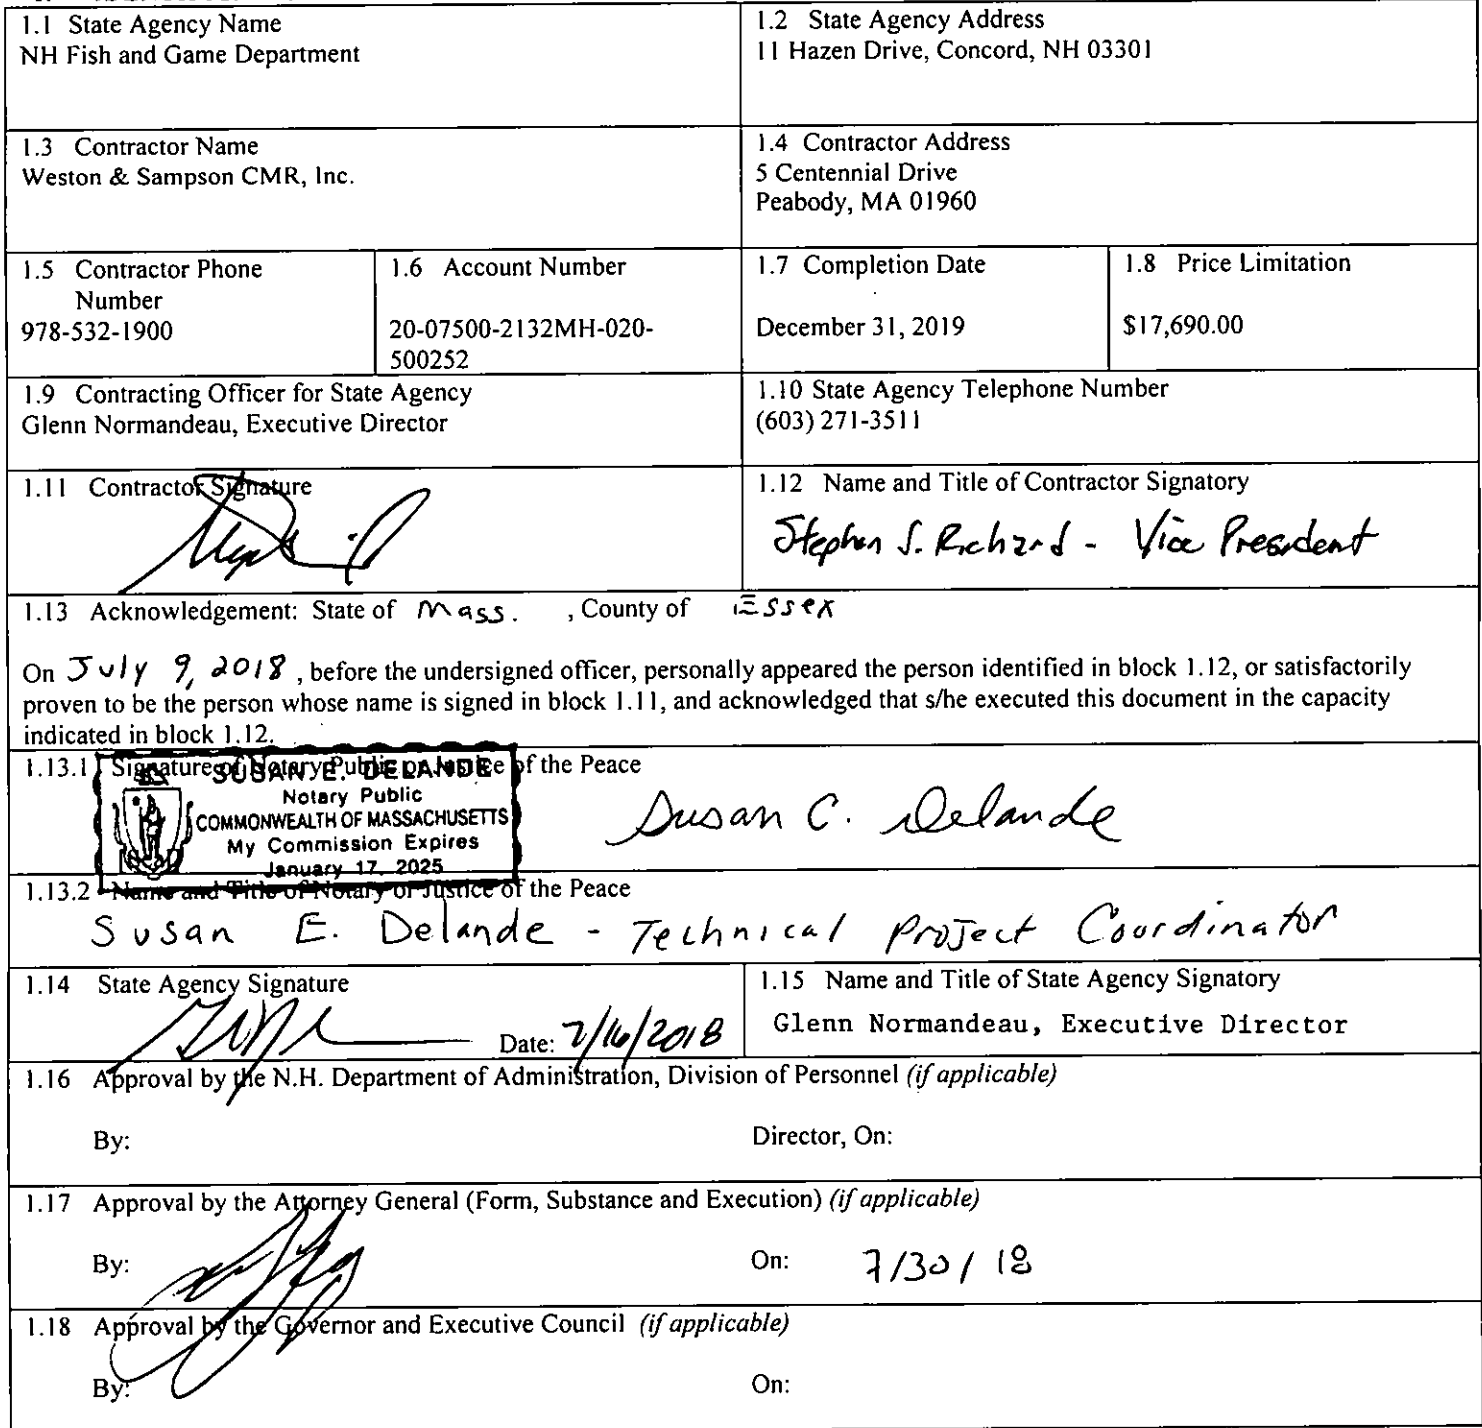 1.1 State Agency Name
NH Fish and Game Department
1.2 State Agency Address
11 Hazen Drive, Concord, NH 03301
1.3 Contractor Name
Weston & Sampson CMR, Inc.
1.4 Contractor Address
5 Centennial Drive
Peabody, MA 01960
1.5 Contractor Phone
Number
978-532-1900
1.6 Account Number
20-07500-2132MH-020-
500252
1.7 Completion Date
December 31, 2019
1.8 Price Limitation
$17,690.00
1.9 Contracting Officer for State Agency
Glenn Normandeau, Executive Director
1.10 State Agency Telephone Number
(603) 271-3511
1.11 Contractor Signature
1.12 Name and Title of Contractor Signatory
Stephen S. Richard - Vice President
1.13 Acknowledgement: State of Mass. , County of Essex
On July 9, 2018 , before the undersigned officer, personally appeared the person identified in block 1.12, or satisfactorily
proven to be the person whose name is signed in block 1.11, and acknowledged that s/he executed this document in the capacity
indicated in block 1.12.
1.13.1 Signature of Notary Public or Justice of the Peace
SUSAN E. DELANDE
Notary Public
COMMONWEALTH OF MASSACHUSETTS
My Commission Expires
January 17, 2025
Susan C. Delande
1.13.2 Name and Title of Notary or Justice of the Peace
Susan E. Delande - Technical Project Coordinator
1.14 State Agency Signature
Date: 7/16/2018
1.15 Name and Title of State Agency Signatory
Glenn Normandeau, Executive Director
1.16 Approval by the N.H. Department of Administration, Division of Personnel (if applicable)
By:
Director, On:
1.17 Approval by the Attorney General (Form, Substance and Execution) (if applicable)
By:
On: 7/30/18
1.18 Approval by the Governor and Executive Council (if applicable)
By:
On: